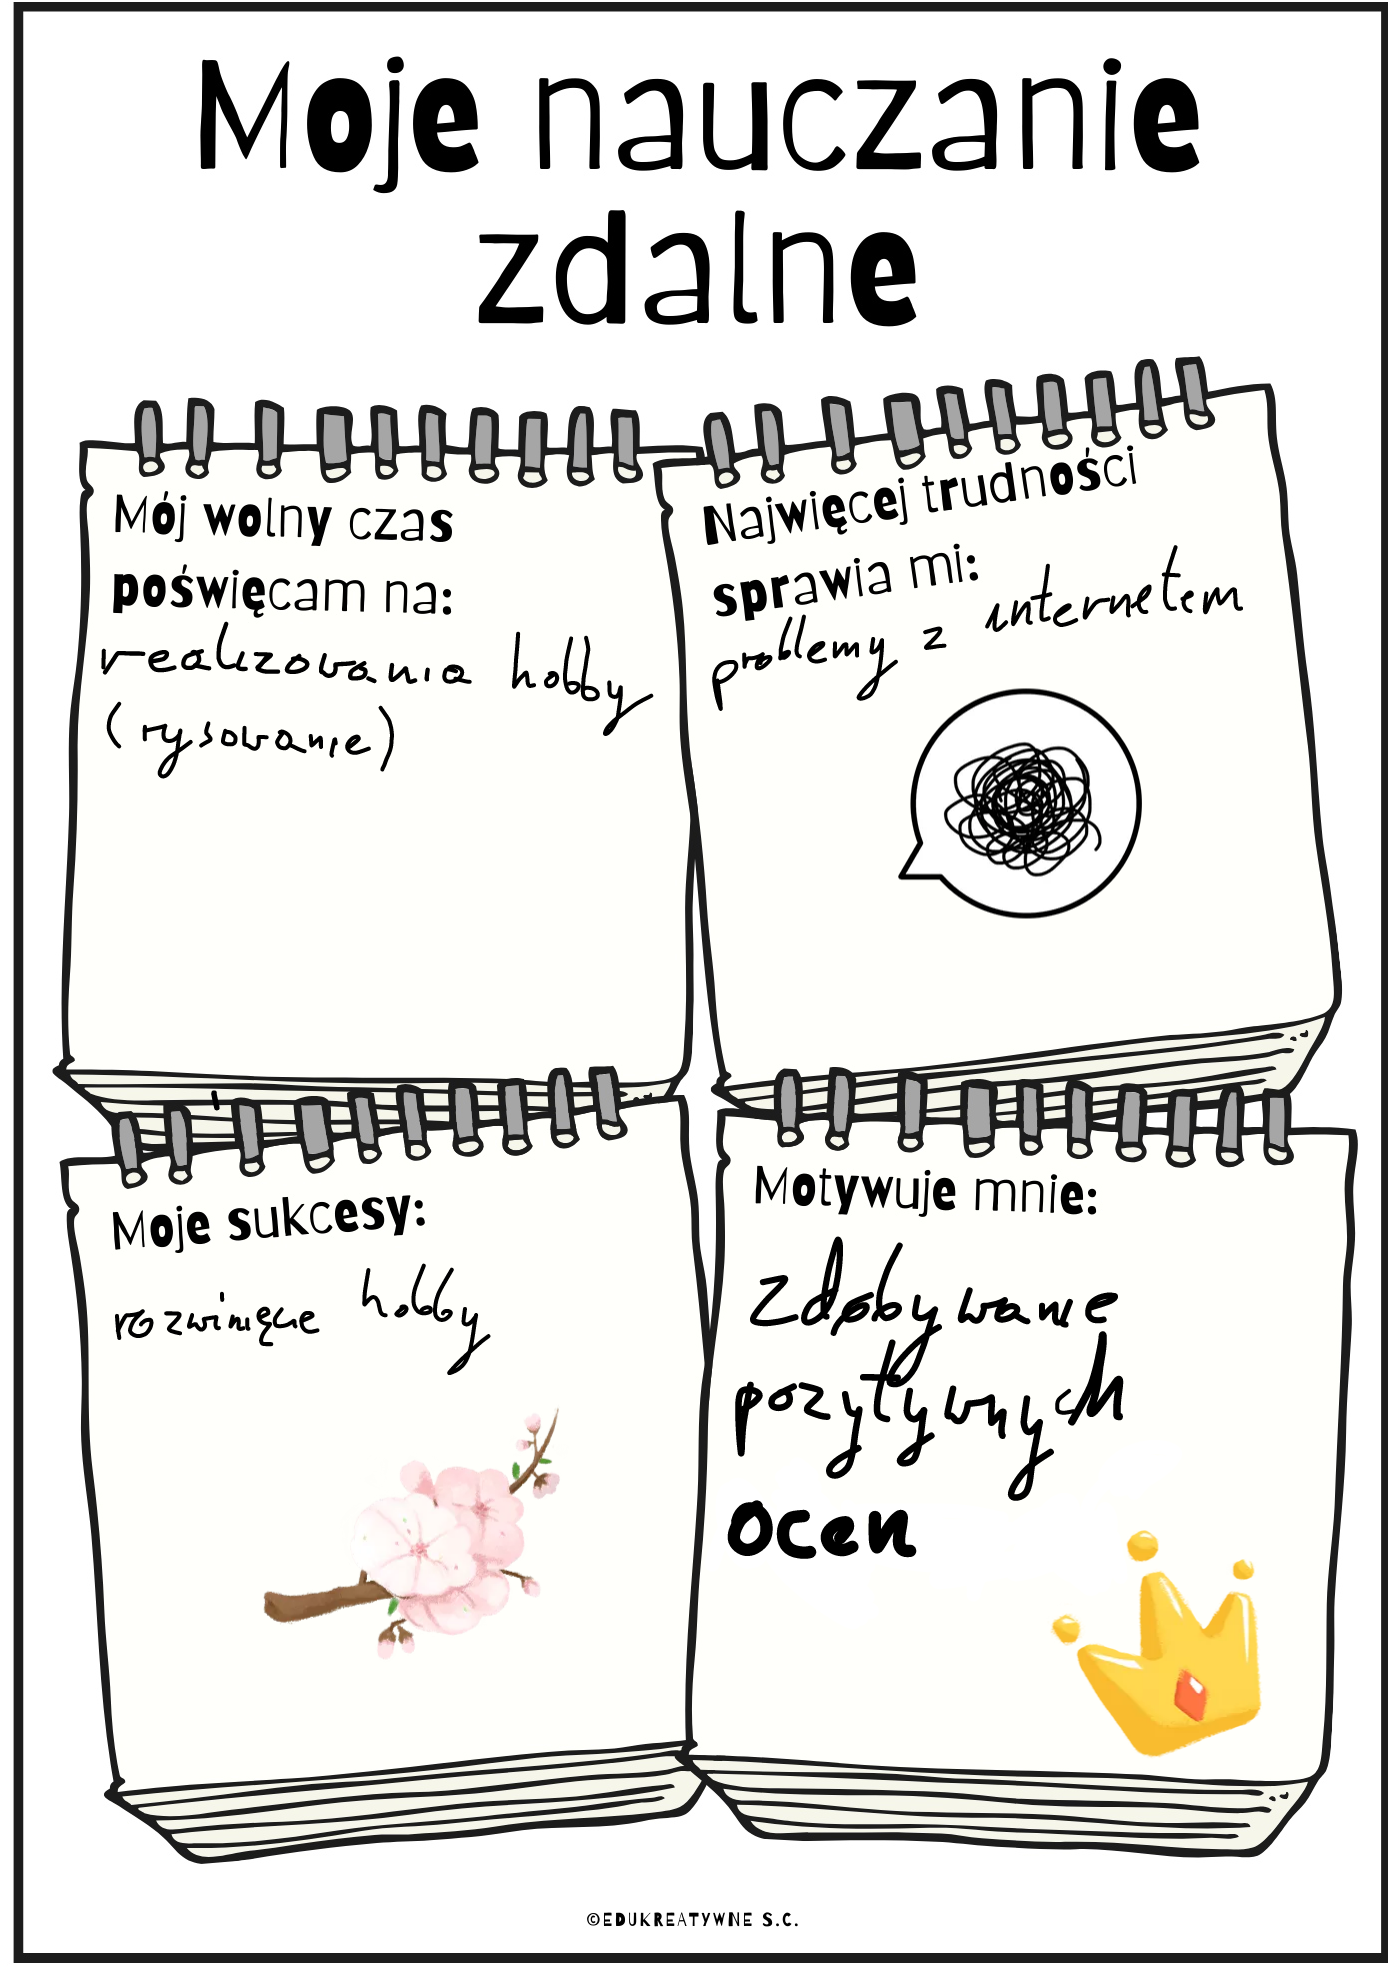 Moje nauczanie
zdalne
Mój wolny czas
poświęcam na:
realizowania hobby
(rysowanie)
Najwięcej trudności
sprawia mi:
problemy z internetem
Moje sukcesy:
rozwinięcie hobby
Motywuje mnie:
zdobywanie
pozytywnych
ocen
©EDUKREATYWNE S.C.